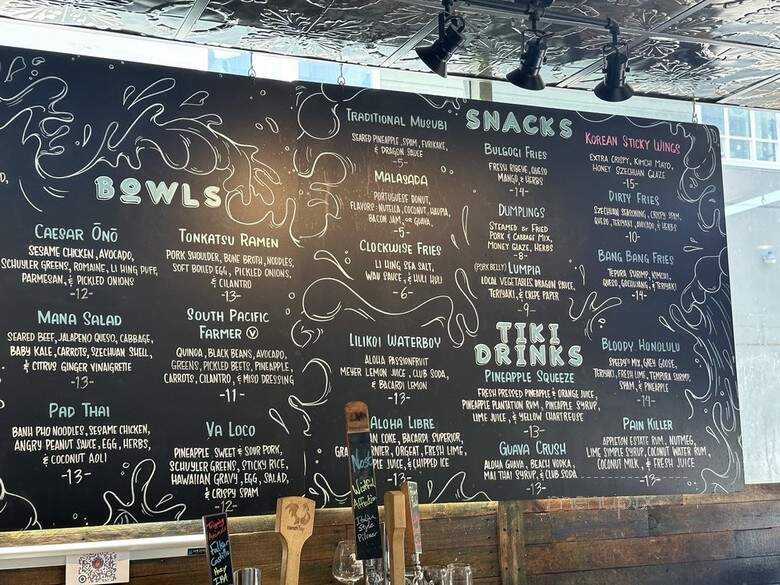 BOWLS
CAESAR ŌNŌ
SESAME CHICKEN, AVOCADO,
SCHUYLER GREENS, ROMAINE, LI HING PUFF,
PARMESAN, & PICKLED ONIONS
-12-
MANA SALAD
SEARED BEEF, JALAPENO QUESO, CABBAGE,
BABY KALE, CARROTS, SZECHUAN SHELL,
& CITRUS GINGER VINAIGRETTE
-13-
PAD THAI
BANH PHO NOODLES, SESAME CHICKEN,
ANGRY PEANUT SAUCE, EGG, HERBS,
& COCONUT AOLI
-13-
TONKATSU RAMEN
PORK SHOULDER, BONE BROTH, NOODLES,
SOFT BOILED EGG, PICKLED ONIONS,
& CILANTRO
-13-
SOUTH PACIFIC
FARMER V
QUINOA, BLACK BEANS, AVOCADO,
GREENS, PICKLED BEETS, PINEAPPLE,
CARROTS, CILANTRO, & MISO DRESSING
-11-
VA LOCO
PINEAPPLE SWEET & SOUR PORK,
SCHUYLER GREENS, STICKY RICE,
HAWAIIAN GRAVY, EGG, SALAD,
& CRISPY SPAM
-12-
SNACKS
TRADITIONAL MUSUBI
SEARED PINEAPPLE, SPAM, FURIKAKE,
& DRAGON SAUCE
-5-
MALASADA
PORTUGUESE DONUT,
FLAVORS: NUTELLA, COCONUT, HAUPIA,
BACON JAM, OR GUAVA
-5-
CLOCKWISE FRIES
LI HING SEA SALT,
WAU SAUCE, & HULI HULI
-6-
BULGOGI FRIES
FRESH RIBEYE, QUESO
MANGO, & HERBS
-14-
DUMPLINGS
STEAMED OR FRIED
PORK & CABBAGE MIX,
MONEY GLAZE, HERBS
-8-
(PORK BELLY) LUMPIA
LOCAL VEGETABLES, DRAGON SAUCE,
TERIYAKI, & CREPE PAPER
-9-
KOREAN STICKY WINGS
EXTRA CRISPY, KIMCHI MAYO,
HONEY SZECHUAN GLAZE
-15-
DIRTY FRIES
SZECHUAN SEASONING, CRISPY SPAM,
QUESO, TERIYAKI, AVOCADO, & HERBS
-10-
BANG BANG FRIES
TEPURA SHRIMP, KIMCHI,
QUESO, GOCHUJANG, & TERIYAKI
-14-
TIKI
DRINKS
LILIKOI WATERBOY
ALOHA PASSIONFRUIT
MEYER LEMON JUICE, CLUB SODA,
& BACARDI LEMON
-13-
ALOHA LIBRE
COKE, BACARDI SUPERIOR,
ORGEAT, FRESH LIME,
JUICE, & CHIPPED ICE
-13-
PINEAPPLE SQUEEZE
FRESH PRESSED PINEAPPLE & ORANGE JUICE,
PINEAPPLE PLANTATION RUM, PINEAPPLE SYRUP,
LIME JUICE, & YELLOW CHARTREUSE
-13-
GUAVA CRUSH
ALOHA GUAVA, BEACH VODKA,
MAI THAI SYRUP, & CLUB SODA
-13-
BLOODY HONOLULU
SPEEDY'S MIX, GREY GOOSE,
TERIYAKI, FRESH LIME, TEMPURA SHRIMP,
SPAM, & PINEAPPLE
-14-
PAIN KILLER
APPLETON ESTATE RUM, NUTMEG,
LIME SIMPLE SYRUP, COCONUT WATER RUM,
COCONUT MILK, & FRESH JUICE
-13-
Italian
Style
Pilsner